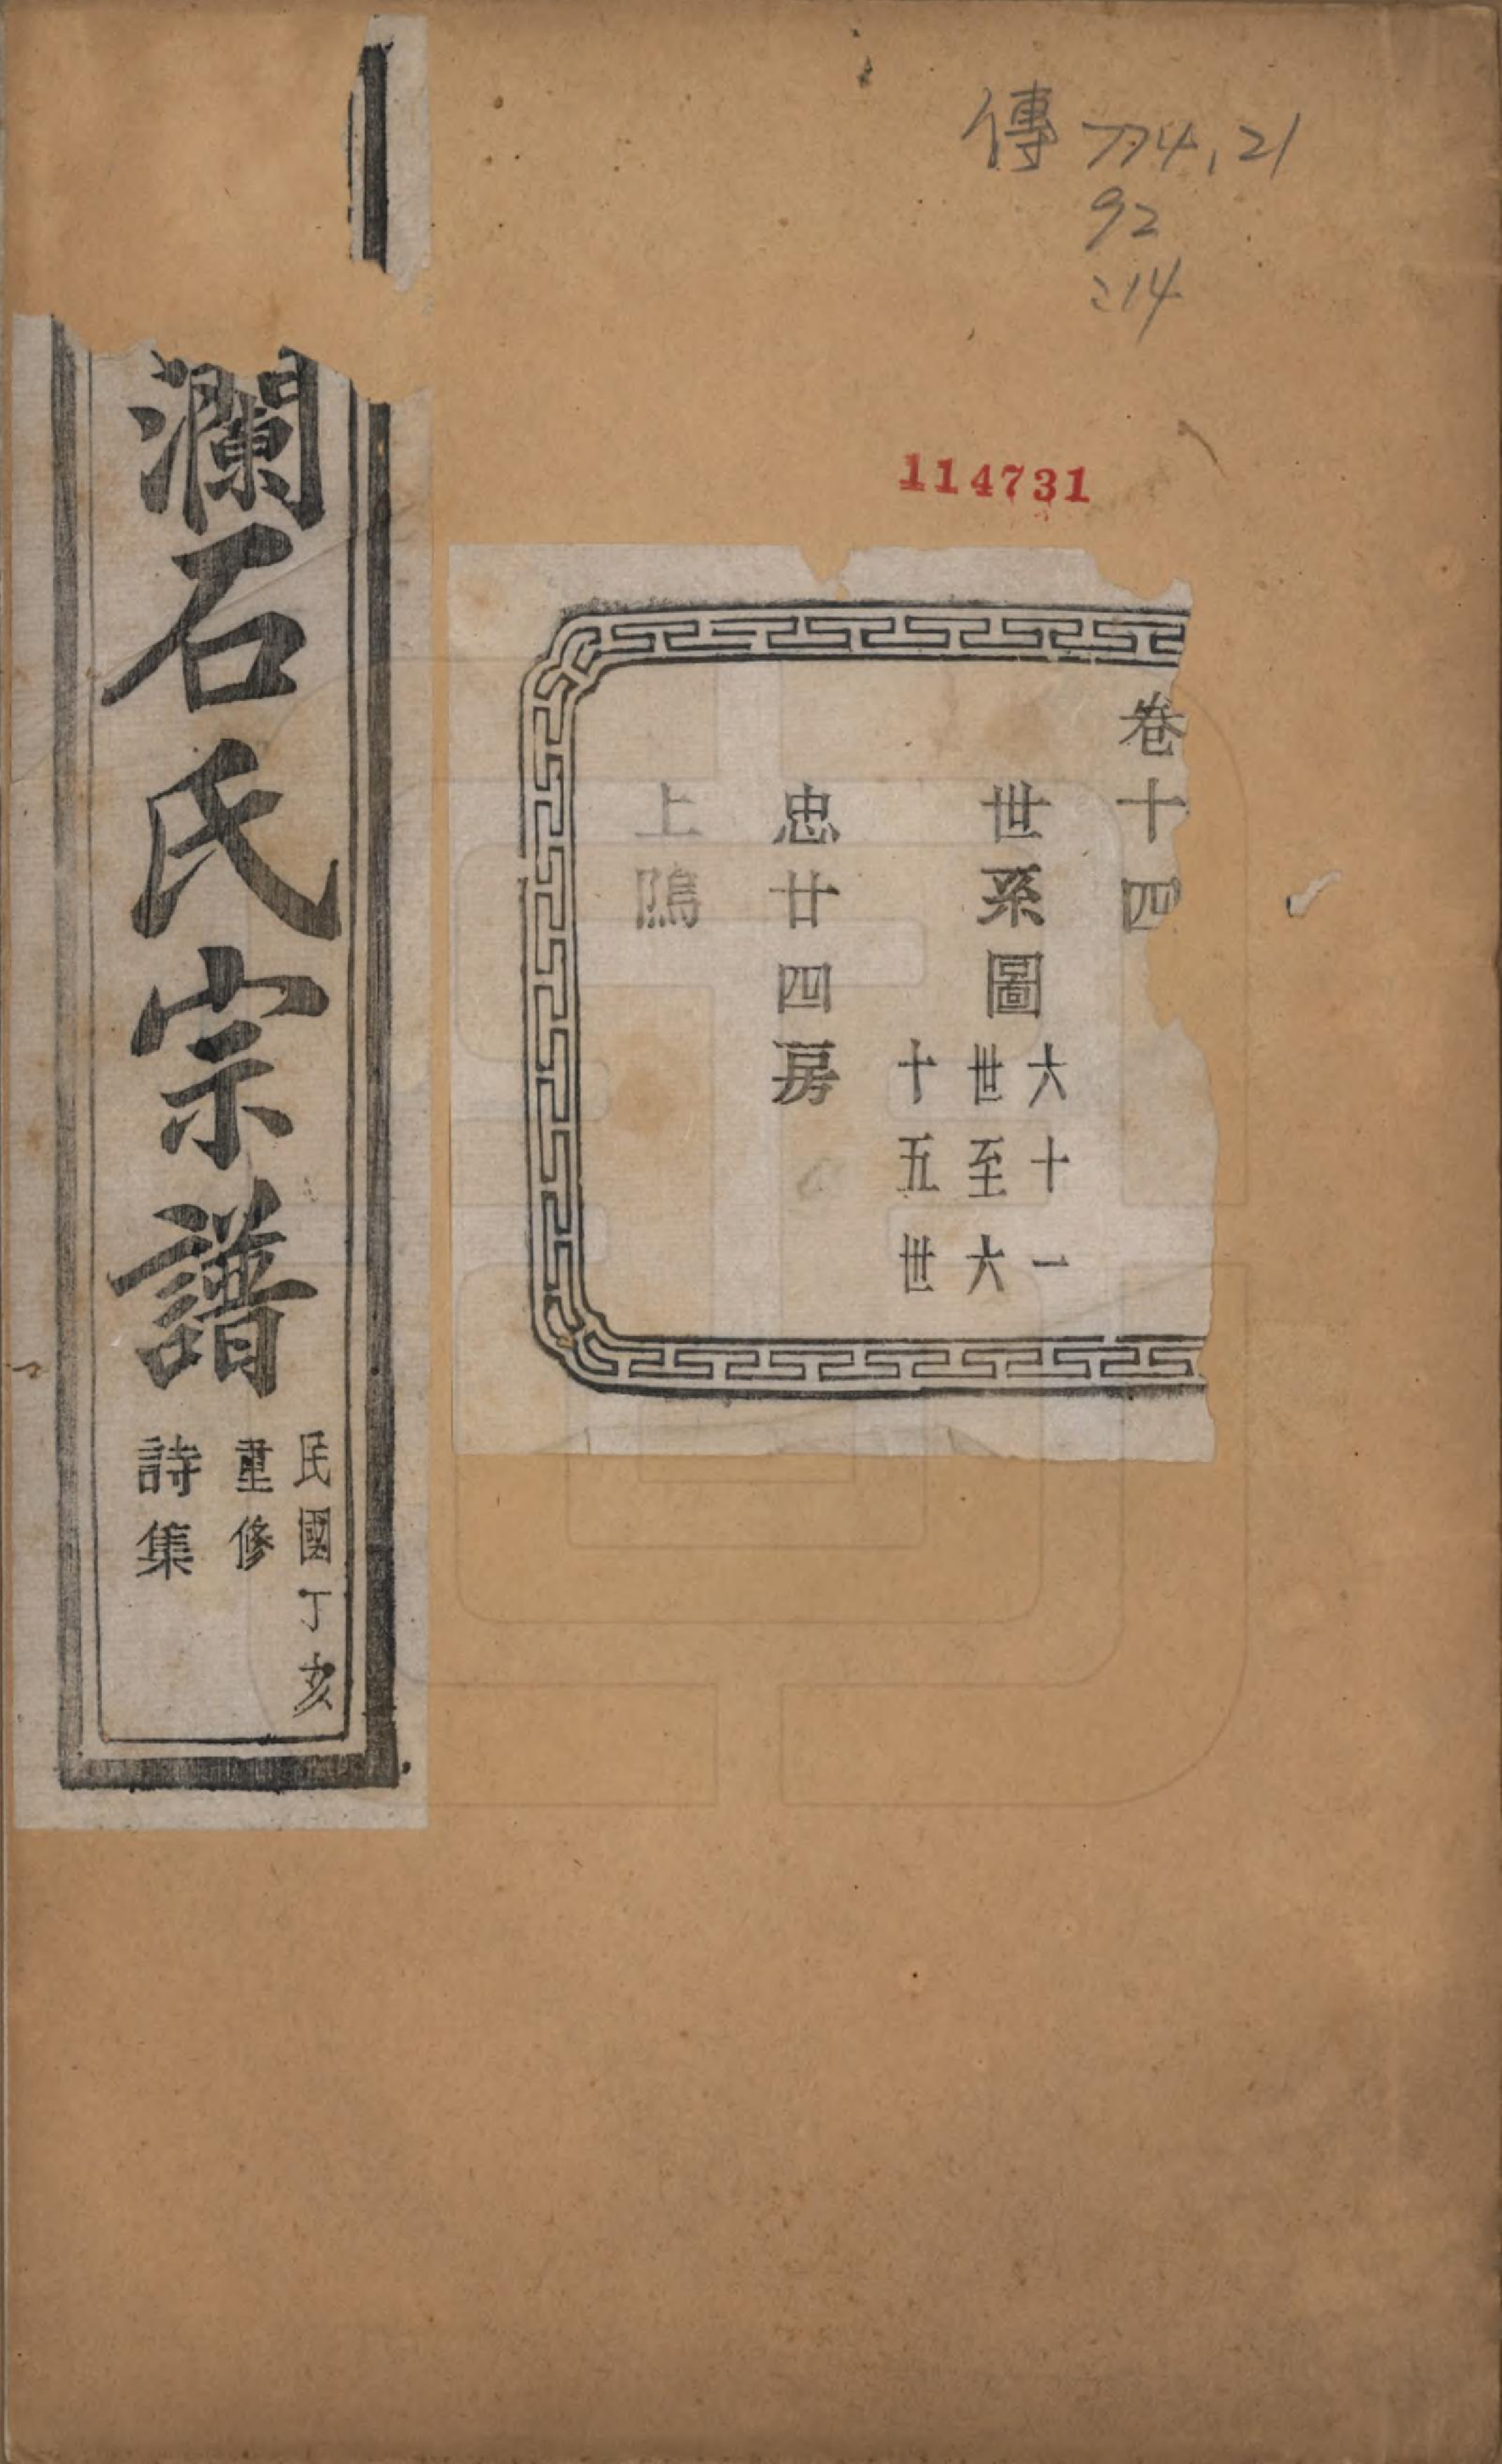 傳 774.21
92
:14
114731
卷十四
世系圖
六十一
世至六
十五世
忠廿四房
上隝
瀾石氏宗譜
民國丁亥
重修
詩集